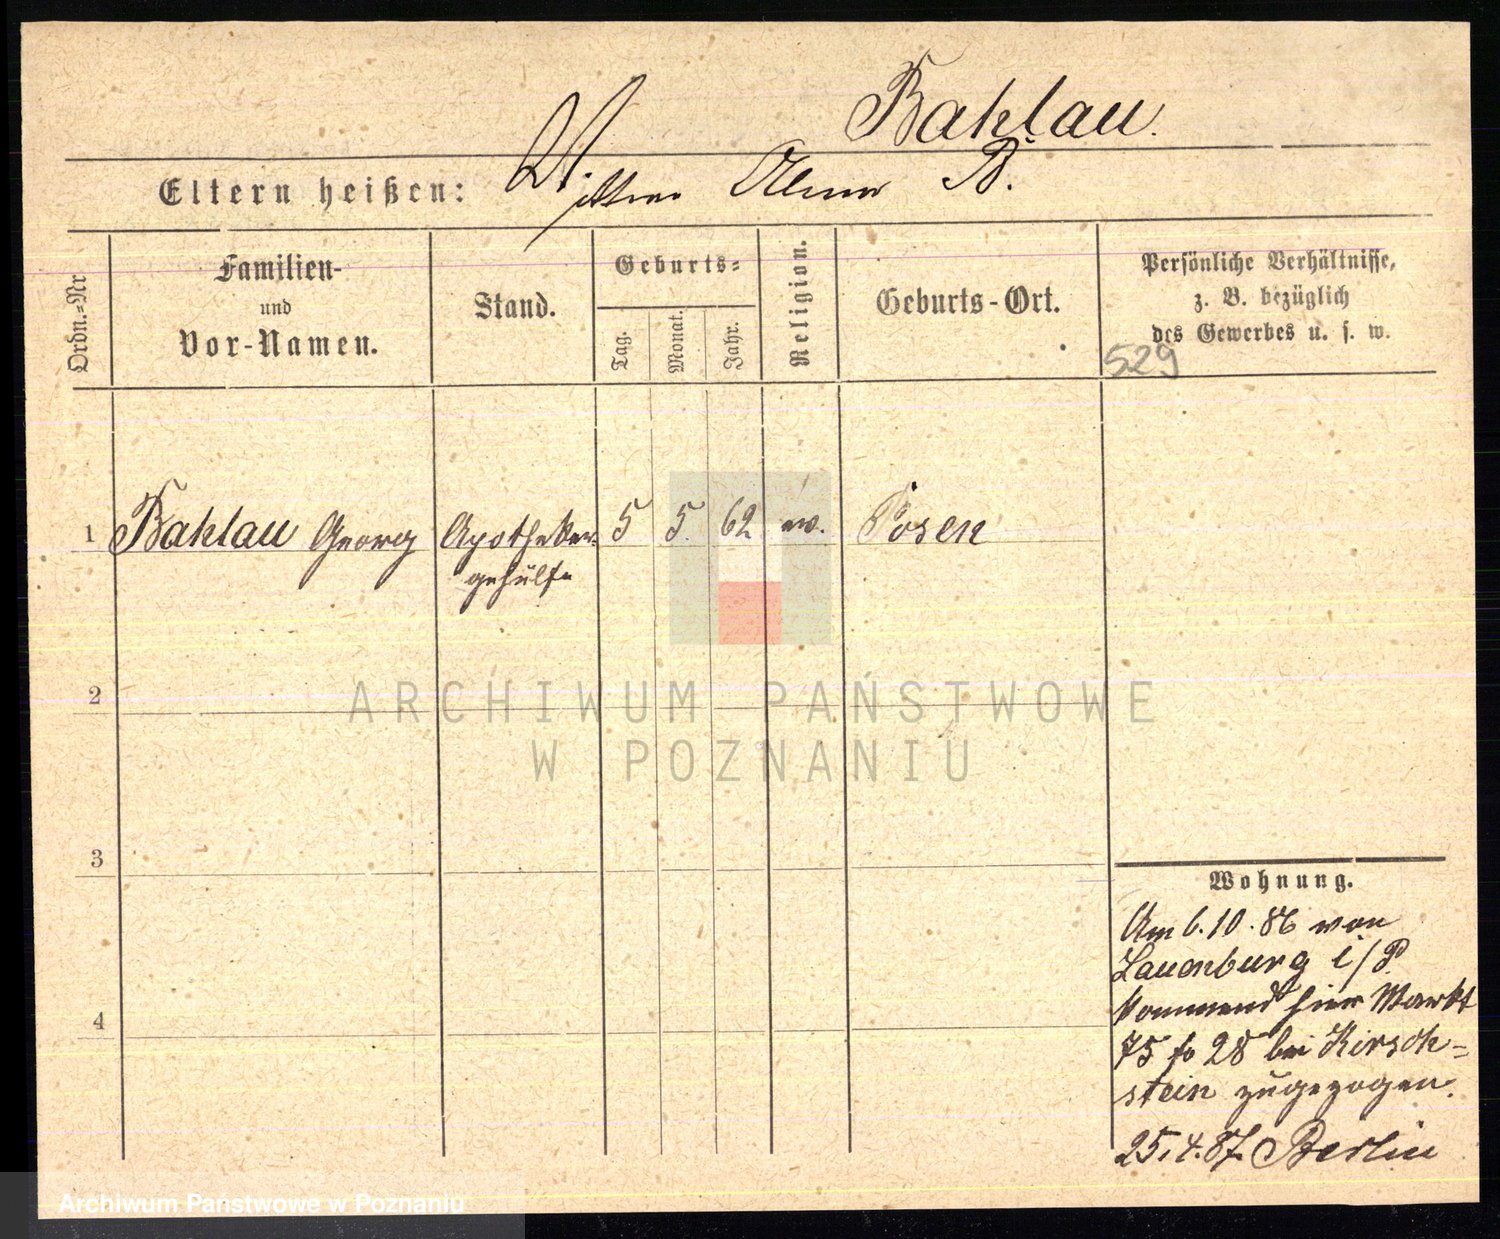 Bahlau.
Eltern heißen: Alma B.
Ordn.=Nr
Familien-
und
Vor-Namen.
Stand.
Geburts=
Tag.
Monat.
Jahr.
Religion.
Geburts-Ort.
Persönliche Verhältnisse,
z. B. bezüglich
des Gewerbes u. s. w.
529
1 Bahlau Georg Apotheker- 5 5. 62 ev. Posen
gehülfe
2
3
4
Wohnung.
Am 6.10.86 von
Lauenburg i/P.
kommend hier Markt
75 28 bei Kirsch=
stein zugezogen.
25.4.87. Berlin
ARCHIWUM PAŃSTWOWE
W POZNANIU
Archiwum Państwowe w Poznaniu